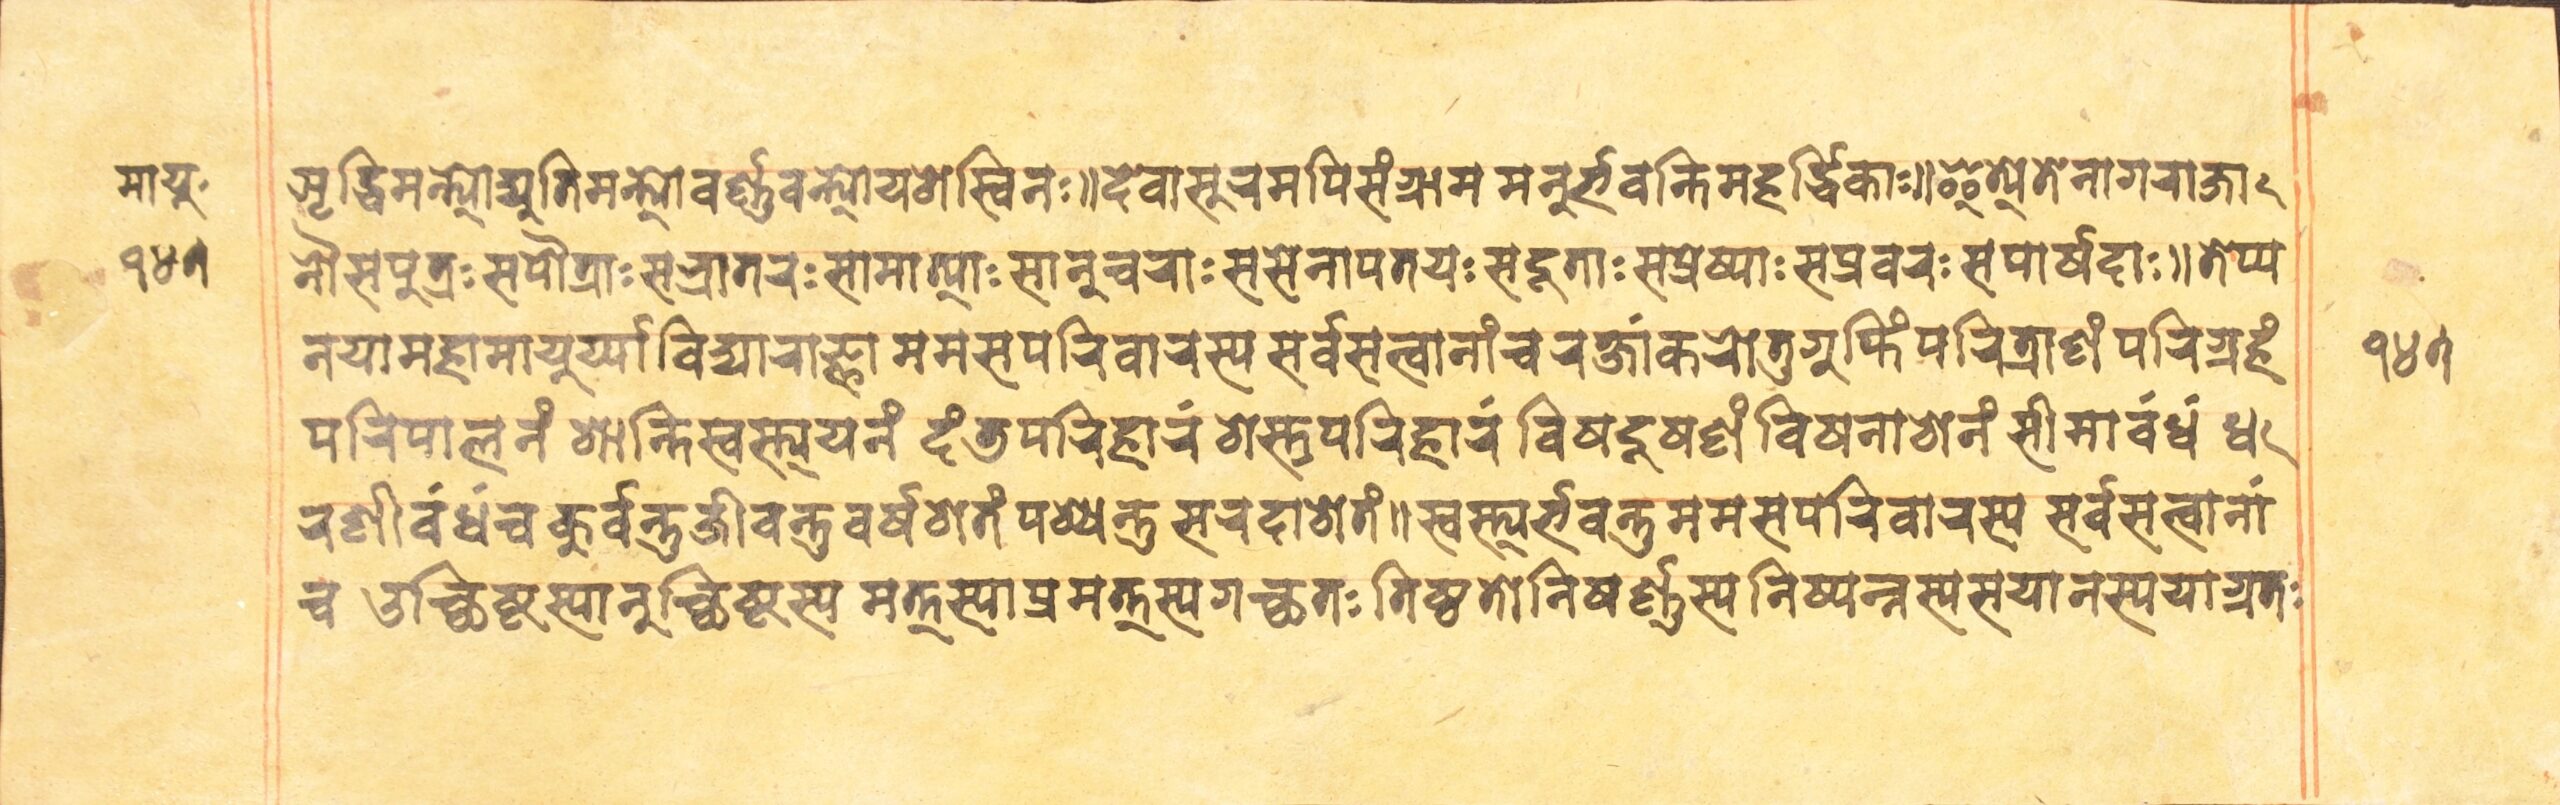 मायु
१४१
ॠद्धिमन्त्योद्युतिमन्त्योवर्ण्णवन्त्योयशस्विनः॥देवासुरमपिसंग्राममनुर्भवन्तिमहर्द्धिकाः॥इत्येतेनागराजा
नौसपुत्रःसपौत्राःसभ्रातरःसामात्याःसानुचराःससेनापतयःसदूताःसप्रेष्याःसप्रवरःसपार्षदाः॥तेप्य
नयामहामायुर्य्याविद्याराज्ञा ममसपरिवारस्य सर्वसत्वानांच रक्षांकरोतुगुप्तिंपरित्राणं परिग्रहं
१४१
परिपालनं शान्तिस्वस्त्ययनं दंडपरिहारं शस्त्रपरिहारं विषदुषणं विषनाशनं सीमावंधं ध
रणीवंधंच कुर्वन्तुजीवन्तु वर्षशतंपश्यन्तु सरदाशतं॥स्वस्त्यर्भवन्तुममसपरिवारस्य सर्वसत्वानां
च उच्छिष्टस्यानुच्छिष्टस्य मत्तस्याप्रमत्तस्यगच्छतः तिष्ठतोनिषर्ण्णस्यनिष्यन्नस्यसयानस्ययाग्रतः